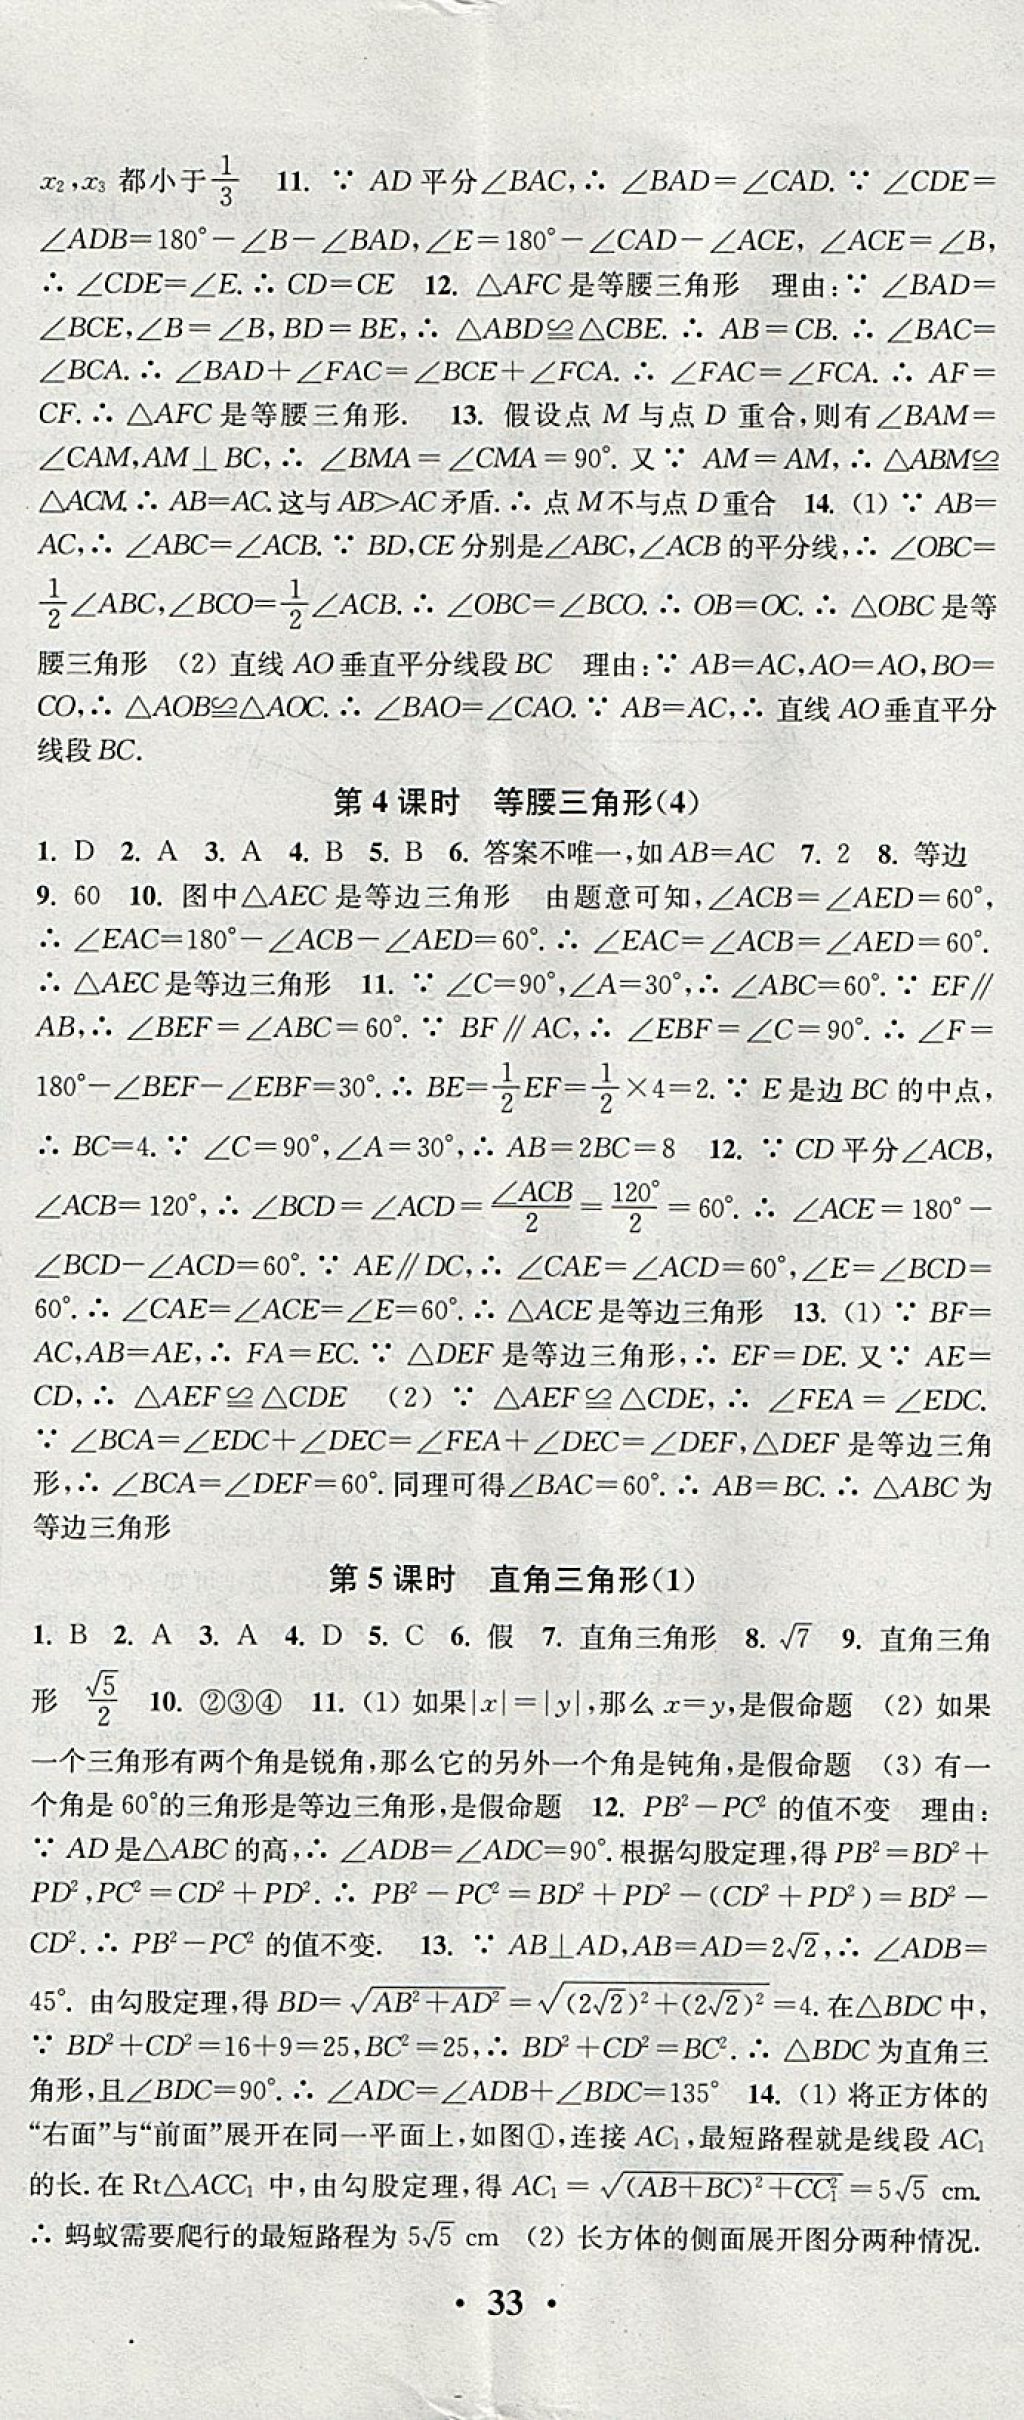 x₂,x₃ 都小于1/3　11. ∵ AD 平分∠BAC,∴ ∠BAD=∠CAD. ∵ ∠CDE=
∠ADB=180°-∠B-∠BAD,∠E=180°-∠CAD-∠ACE, ∠ACE=∠B,
∴ ∠CDE=∠E. ∴ CD=CE　12. △AFC 是等腰三角形　理由:∵ ∠BAD=
∠BCE,∠B=∠B,BD=BE,∴ △ABD≌△CBE. ∴ AB=CB. ∴ ∠BAC=
∠BCA. ∴ ∠BAD+∠FAC=∠BCE+∠FCA. ∴ ∠FAC=∠FCA. ∴ AF=
CF. ∴ △AFC 是等腰三角形.　13. 假设点 M 与点 D 重合,则有∠BAM=
∠CAM,AM⊥BC,∴ ∠BMA=∠CMA=90°. 又∵ AM=AM,∴ △ABM≌
△ACM. ∴ AB=AC. 这与AB>AC矛盾. ∴ 点M不与点D重合　14. (1) ∵ AB=
AC,∴ ∠ABC=∠ACB. ∵ BD,CE分别是∠ABC,∠ACB的平分线,∴ ∠OBC=
1/2∠ABC,∠BCO=1/2∠ACB. ∴ ∠OBC=∠BCO. ∴ OB=OC. ∴ △OBC 是等
腰三角形　(2) 直线 AO 垂直平分线段 BC　理由:∵ AB=AC,AO=AO,BO=
CO,∴ △AOB≌△AOC. ∴ ∠BAO=∠CAO. ∵ AB=AC,∴ 直线 AO 垂直平分
线段 BC.
第 4 课时　等腰三角形(4)
1. D　2. A　3. A　4. B　5. B　6. 答案不唯一,如 AB=AC　7. 2　8. 等边
9. 60　10. 图中△AEC 是等边三角形　由题意可知,∠ACB=∠AED=60°,
∴ ∠EAC=180°-∠ACB-∠AED=60°. ∴ ∠EAC=∠ACB=∠AED=60°.
∴ △AEC 是等边三角形　11. ∵ ∠C=90°,∠A=30°,∴ ∠ABC=60°. ∵ EF∥
AB,∴ ∠BEF=∠ABC=60°. ∵ BF∥AC,∴ ∠EBF=∠C=90°. ∴ ∠F=
180°-∠BEF-∠EBF=30°. ∴ BE=1/2EF=1/2×4=2. ∵ E 是边 BC 的中点,
∴ BC=4. ∵ ∠C=90°,∠A=30°,∴ AB=2BC=8　12. ∵ CD 平分∠ACB,
∠ACB=120°,∴ ∠BCD=∠ACD=∠ACB/2=120°/2=60°. ∴ ∠ACE=180°-
∠BCD-∠ACD=60°. ∵ AE∥DC,∴ ∠CAE=∠ACD=60°,∠E=∠BCD=
60°. ∴ ∠CAE=∠ACE=∠E=60°. ∴ △ACE 是等边三角形　13. (1) ∵ BF=
AC,AB=AE,∴ FA=EC. ∵ △DEF 是等边三角形,∴ EF=DE. 又∵ AE=
CD,∴ △AEF≌△CDE　(2) ∵ △AEF≌△CDE,∴ ∠FEA=∠EDC.
∵ ∠BCA=∠EDC+∠DEC=∠FEA+∠DEC=∠DEF,△DEF 是等边三角
形,∴ ∠BCA=∠DEF=60°. 同理可得∠BAC=60°. ∴ AB=BC. ∴ △ABC 为
等边三角形
第 5 课时　直角三角形(1)
1. B　2. A　3. A　4. D　5. C　6. 假　7. 直角三角形　8. √7　9. 直角三角
形　√5/2　10. ②③④　11. (1) 如果|x|=|y|,那么 x=y,是假命题　(2) 如果
一个三角形有两个角是锐角,那么它的另外一个角是钝角,是假命题　(3) 有一
个角是 60°的三角形是等边三角形,是假命题　12. PB²-PC² 的值不变　理由:
∵ AD 是△ABC 的高,∴ ∠ADB=∠ADC=90°. 根据勾股定理,得 PB²=BD²+
PD²,PC²=CD²+PD². ∴ PB²-PC²=BD²+PD²-(CD²+PD²)=BD²-
CD². ∴ PB²-PC² 的值不变.　13. ∵ AB⊥AD,AB=AD=2√2,∴ ∠ADB=
45°. 由勾股定理,得 BD=√(AB²+AD²)=√((2√2)²+(2√2)²)=4. 在△BDC 中,
∵ BD²+CD²=16+9=25,BC²=25,∴ BD²+CD²=BC². ∴ △BDC 为直角三
角形,且∠BDC=90°. ∴ ∠ADC=∠ADB+∠BDC=135°　14. (1) 将正方体的
“右面”与“前面”展开在同一平面上,如图①,连接 AC₁,最短路程就是线段 AC₁
的长. 在 Rt△ACC₁ 中,由勾股定理,得 AC₁=√((AB+BC)²+CC₁²)=5√5 cm.
∴ 蚂蚁需要爬行的最短路程为 5√5 cm　(2) 长方体的侧面展开图分两种情况.
• 33 •